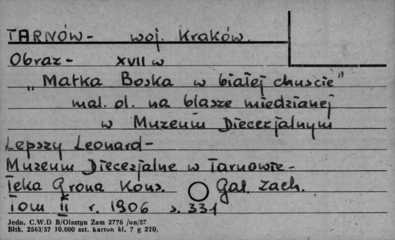 TARNÓW- woj. Kraków.
Obraz- XVII w
"Matka Boska w białej chuście"
mal. ol. na blasze miedzianej
w Muzeum Diecezjalnym
Lepszy Leonard-
Muzeum Diecezjalne w Tarnowie-
Teka Grona Kons. Gal. zach.
Tom II r. 1906 s. 331
Jedn. C.W.D B/Olsztyn Zam 2776 /on/57
Bltk. 2563/57 10.000 szt. karton kl. 7 g 220.